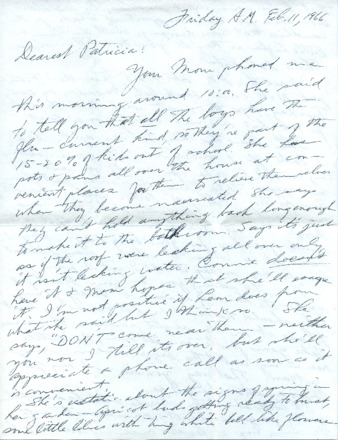 Friday A.M. Feb. 11, 1966
Dearest Patricia:
Your Mom phoned me
this morning around 10:a. She said
to tell you that all the boys have the
flu - current kind, so they're part of the
15-20% of kids out of school. She has
pots & pans all over the house at con-
venient places for them to relieve themselves
when they become nauseated. She says
they can't hold anything back long enough
to make it to the bathroom. Says it's just
as if the roof were leaking all over only
it isn't leaking water. Connie doesn't
have it & Mom hopes that she'll escape
it. I'm not positive if Leon does from
what she said but I think so. She
says, "DON'T come near them - neither
you nor I till it's over, but she'll
appreciate a phone call as soon as it
is convenient.
She's ecstatic about the signs of spring in
her garden - Apricot buds getting ready to burst,
some little lilies with white bell like flowers